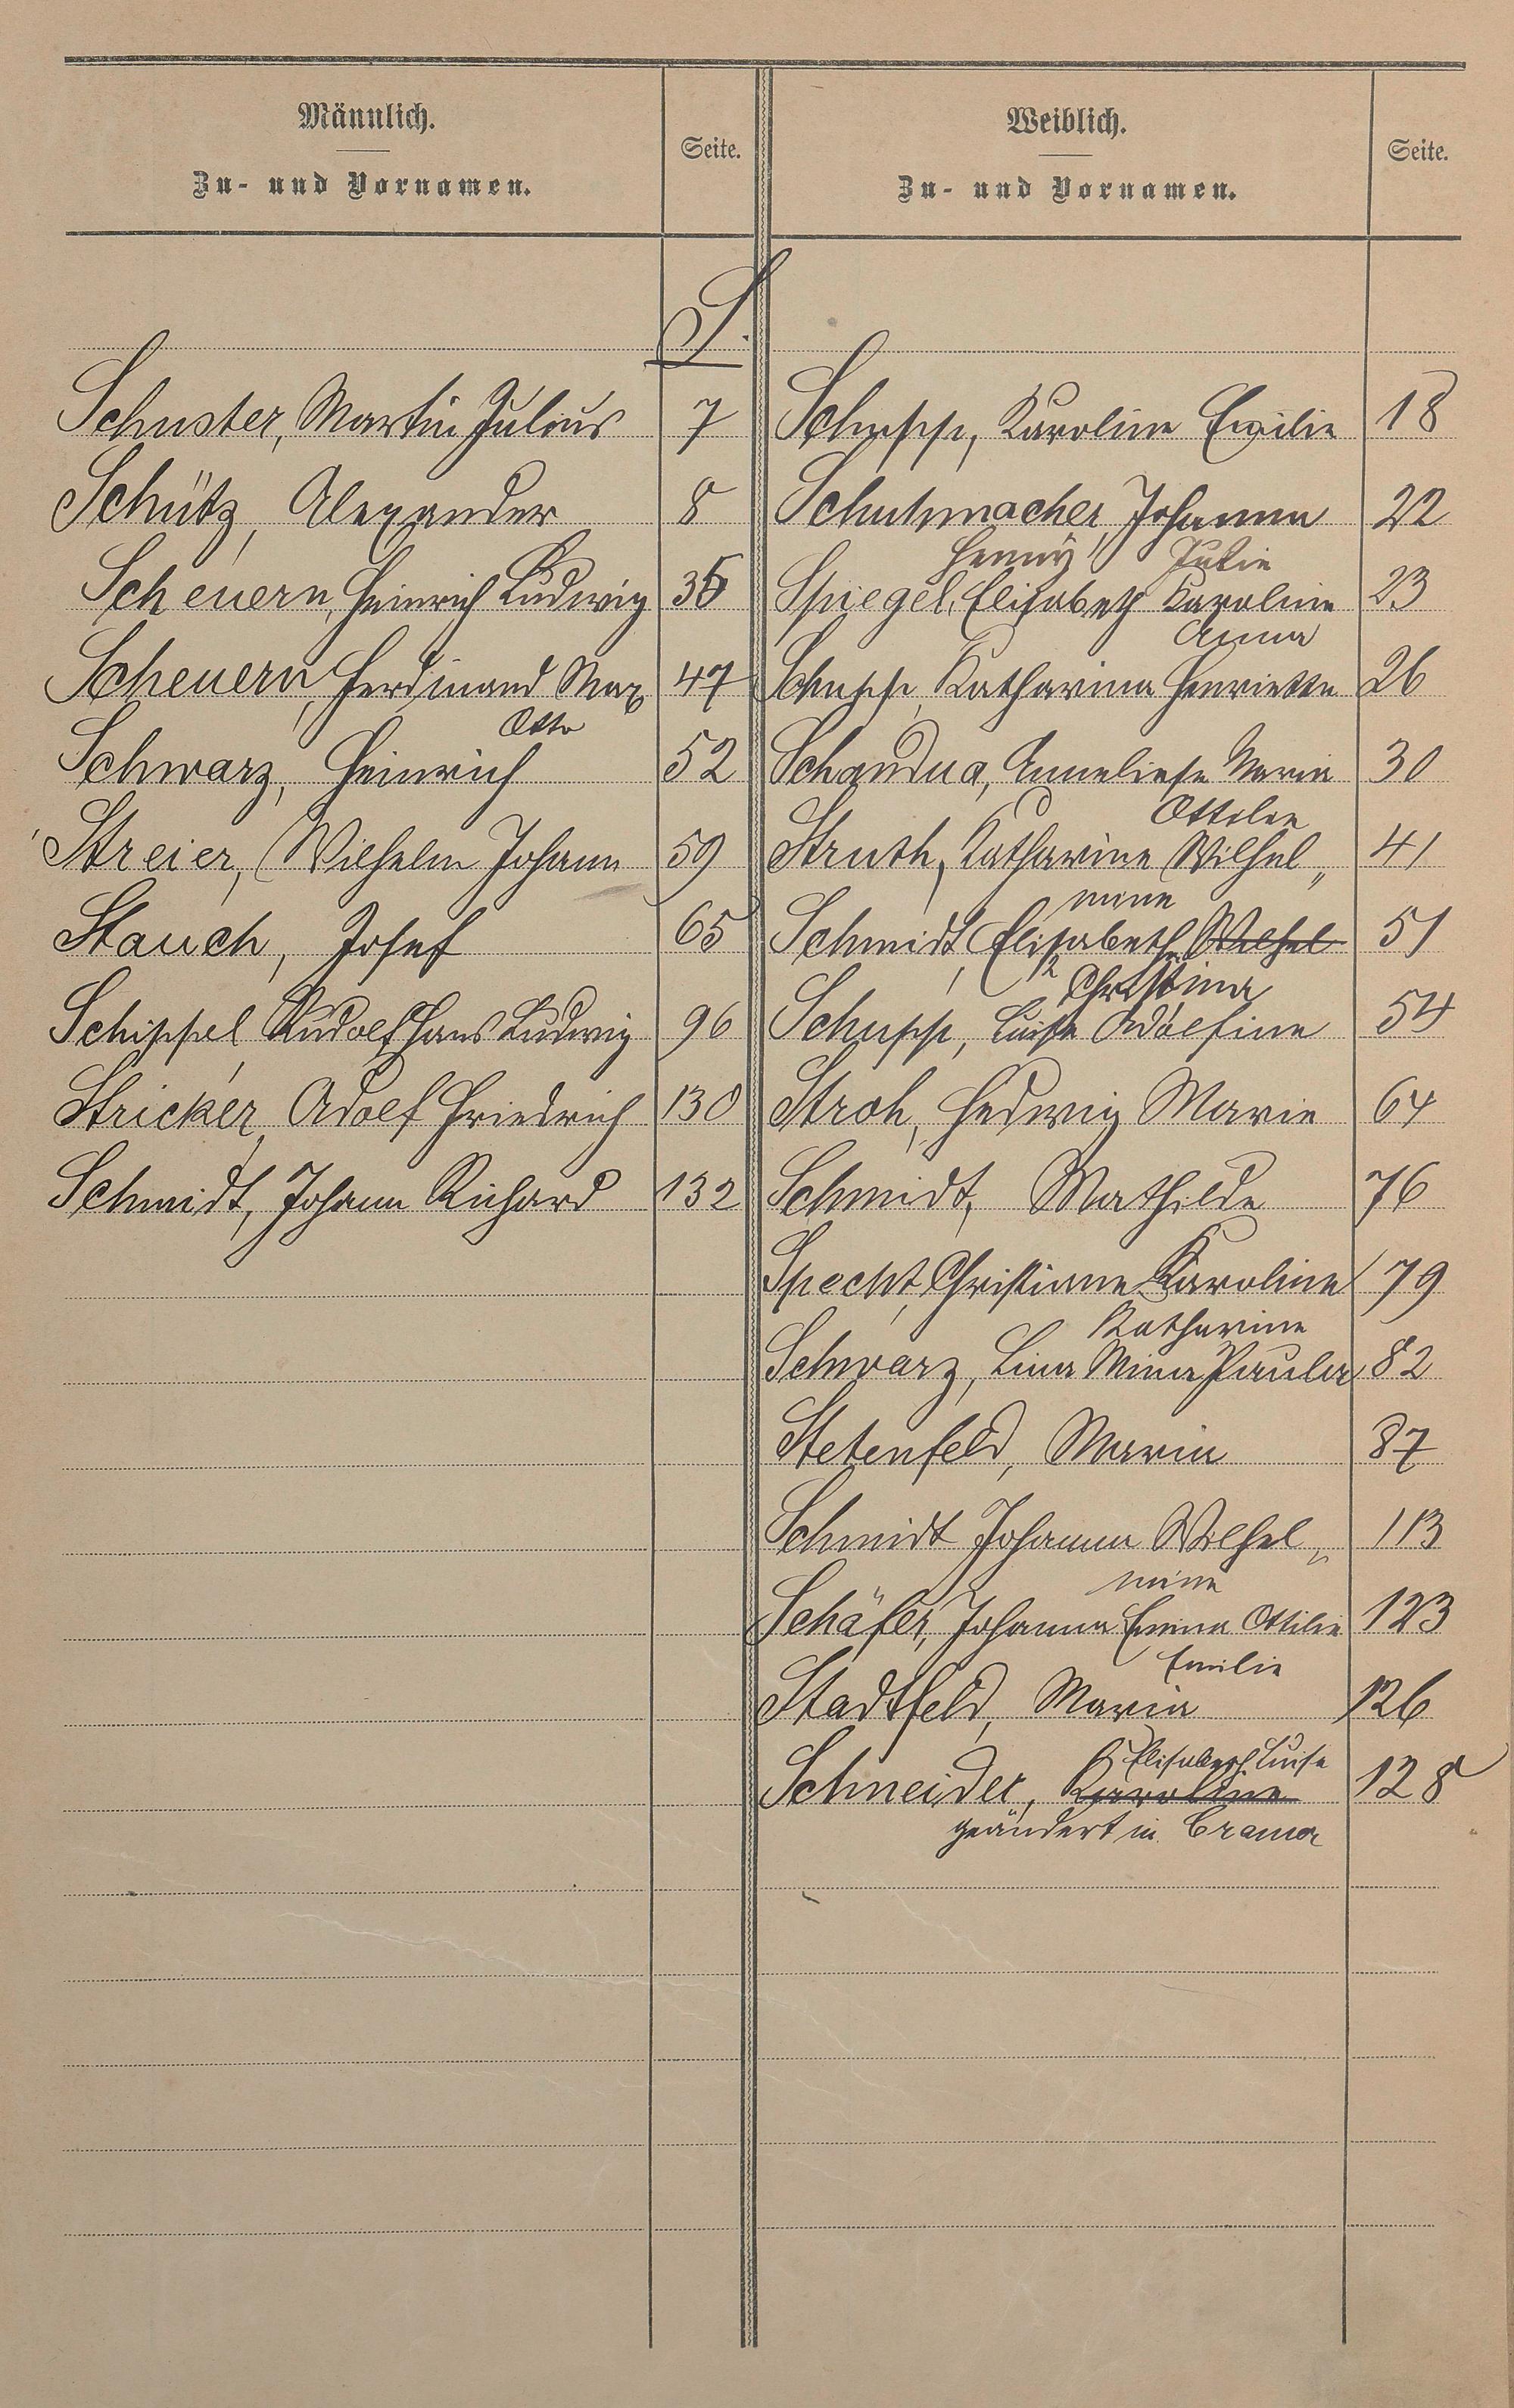 Männlich.
Zu- und Vornamen.
Seite.
Weiblich.
Zu- und Vornamen.
Seite.
S.
Schuster, Martin Julius 7
Schütz, Alexander 8
Scheuern, Heinrich Ludwig 35
Scheuern, Ferdinand Max 47
Otto
Schwarz, Heinrich 52
Streier, Wilhelm Johann 59
Stauch, Josef 65
Schippel, Rudolf Hans Ludwig 96
Stricker, Adolf Friedrich 130
Schmidt, Johann Richard 132
Schupp, Karoline Emilie 18
Schuhmacher, Johanna 22
Henny Julie
Spiegel, Elisabeth Karoline 23
Anna
Schupp, Katharina Henriette 26
Schandua, Anneliese Maria 30
Ottilie
Struth, Katharine Wilhel„ 41
mine
Schmidt, Elisabeth Wilhel 51
Christina
Schupp, Luise Adolfine 54
Stroh, Hedwig Marie 64
Schmidt, Mathilde 76
Specht, Christiane Karoline 79
Katharine
Schwarz, Lina Mina Paula 82
Stetenfeld, Maria 87
Schmidt Johanna Wilhel„ 113
mine
Schäfer, Johanna Emma Ottilie 123
Emilie
Stadtfeld, Maria 126
Elisabeth Luise
Schneider, Karoline 128
geändert in Cramer